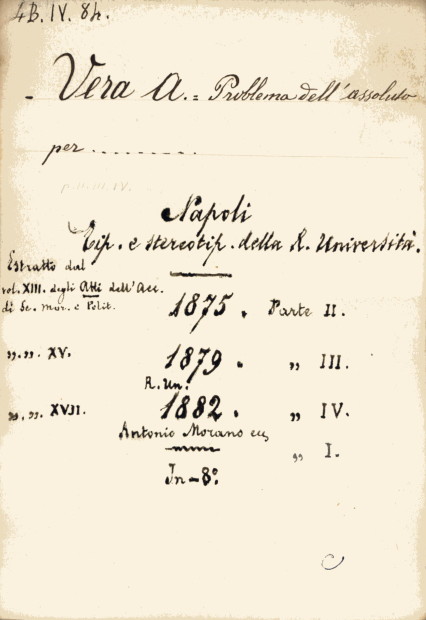 4B. IV. 84.
- Vera A. = Problema dell'assoluto
per . . . . . . . . .
p. II. III. IV.
Napoli
Tip. e stereotip. della R. Università.
Estratto dal
vol. XIII. degli Atti dell'Acc.
di Sc. mor. e Polit.
1875. Parte II.
„.„. XV. 1879. „ III.
R. Un.
„.„. XVII. 1882. „ IV.
Antonio Morano
„ I.
In-8°